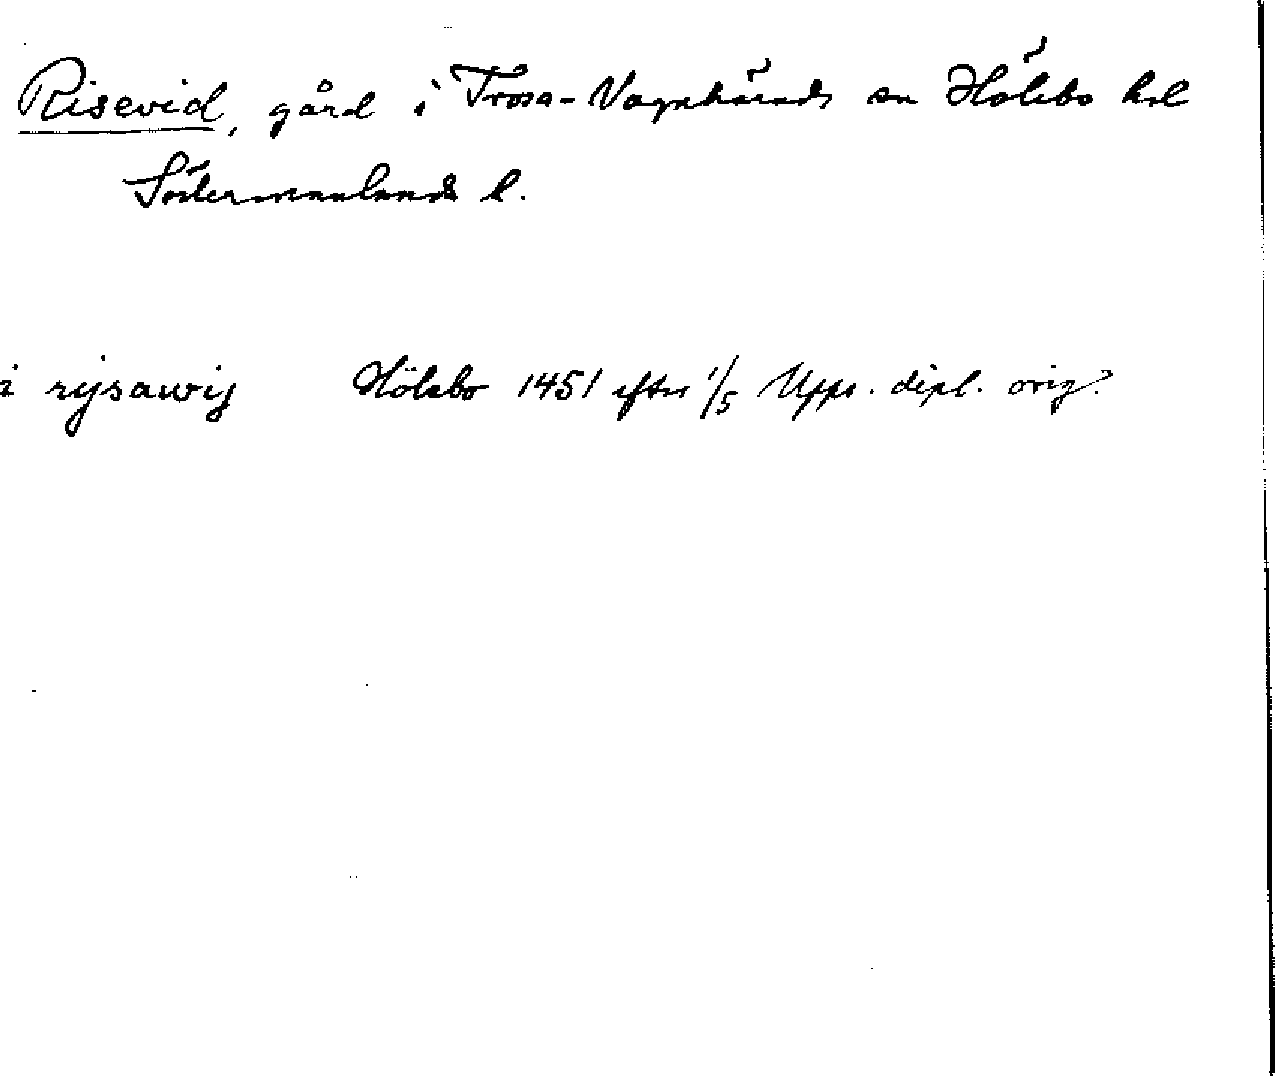 Risevid, gård i Trosa-Vagnhärads sn Hölebo hd
Södermanlands l.
i rijsawij Hölebo 1451 efter 1/5 Upps. dipl. orig?